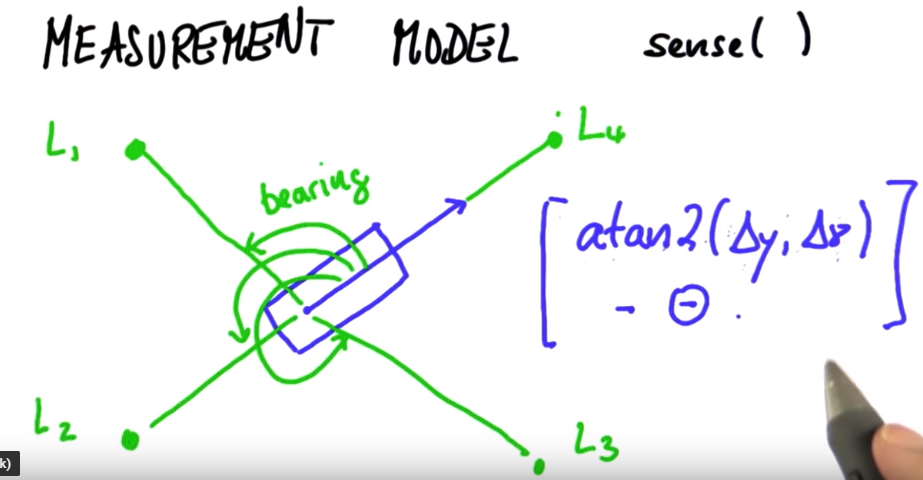 MEASUREMENT MODEL sense( )
L₁
L₄
bearing
[ atan2(Δy, Δx)
- Θ . ]
L₂
L₃
k)